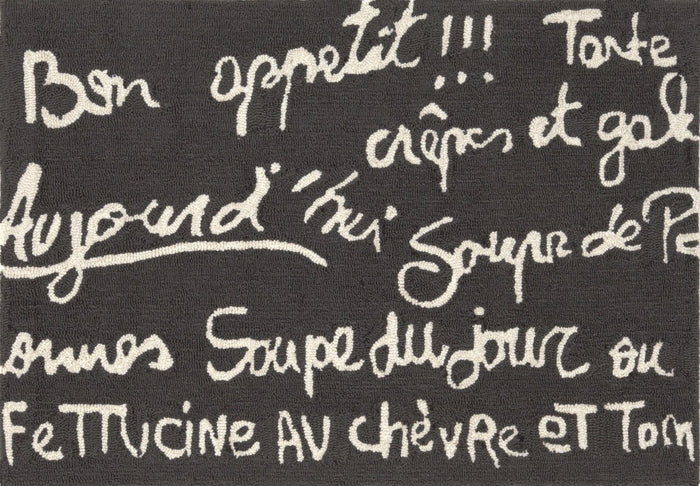 Bon appetit !!! Tarte
crêpes et gal
Aujourd'hui Soupe de Pa
ommes Soupe du jour ou
FeTTUCINE AU chèvRe eT Tom